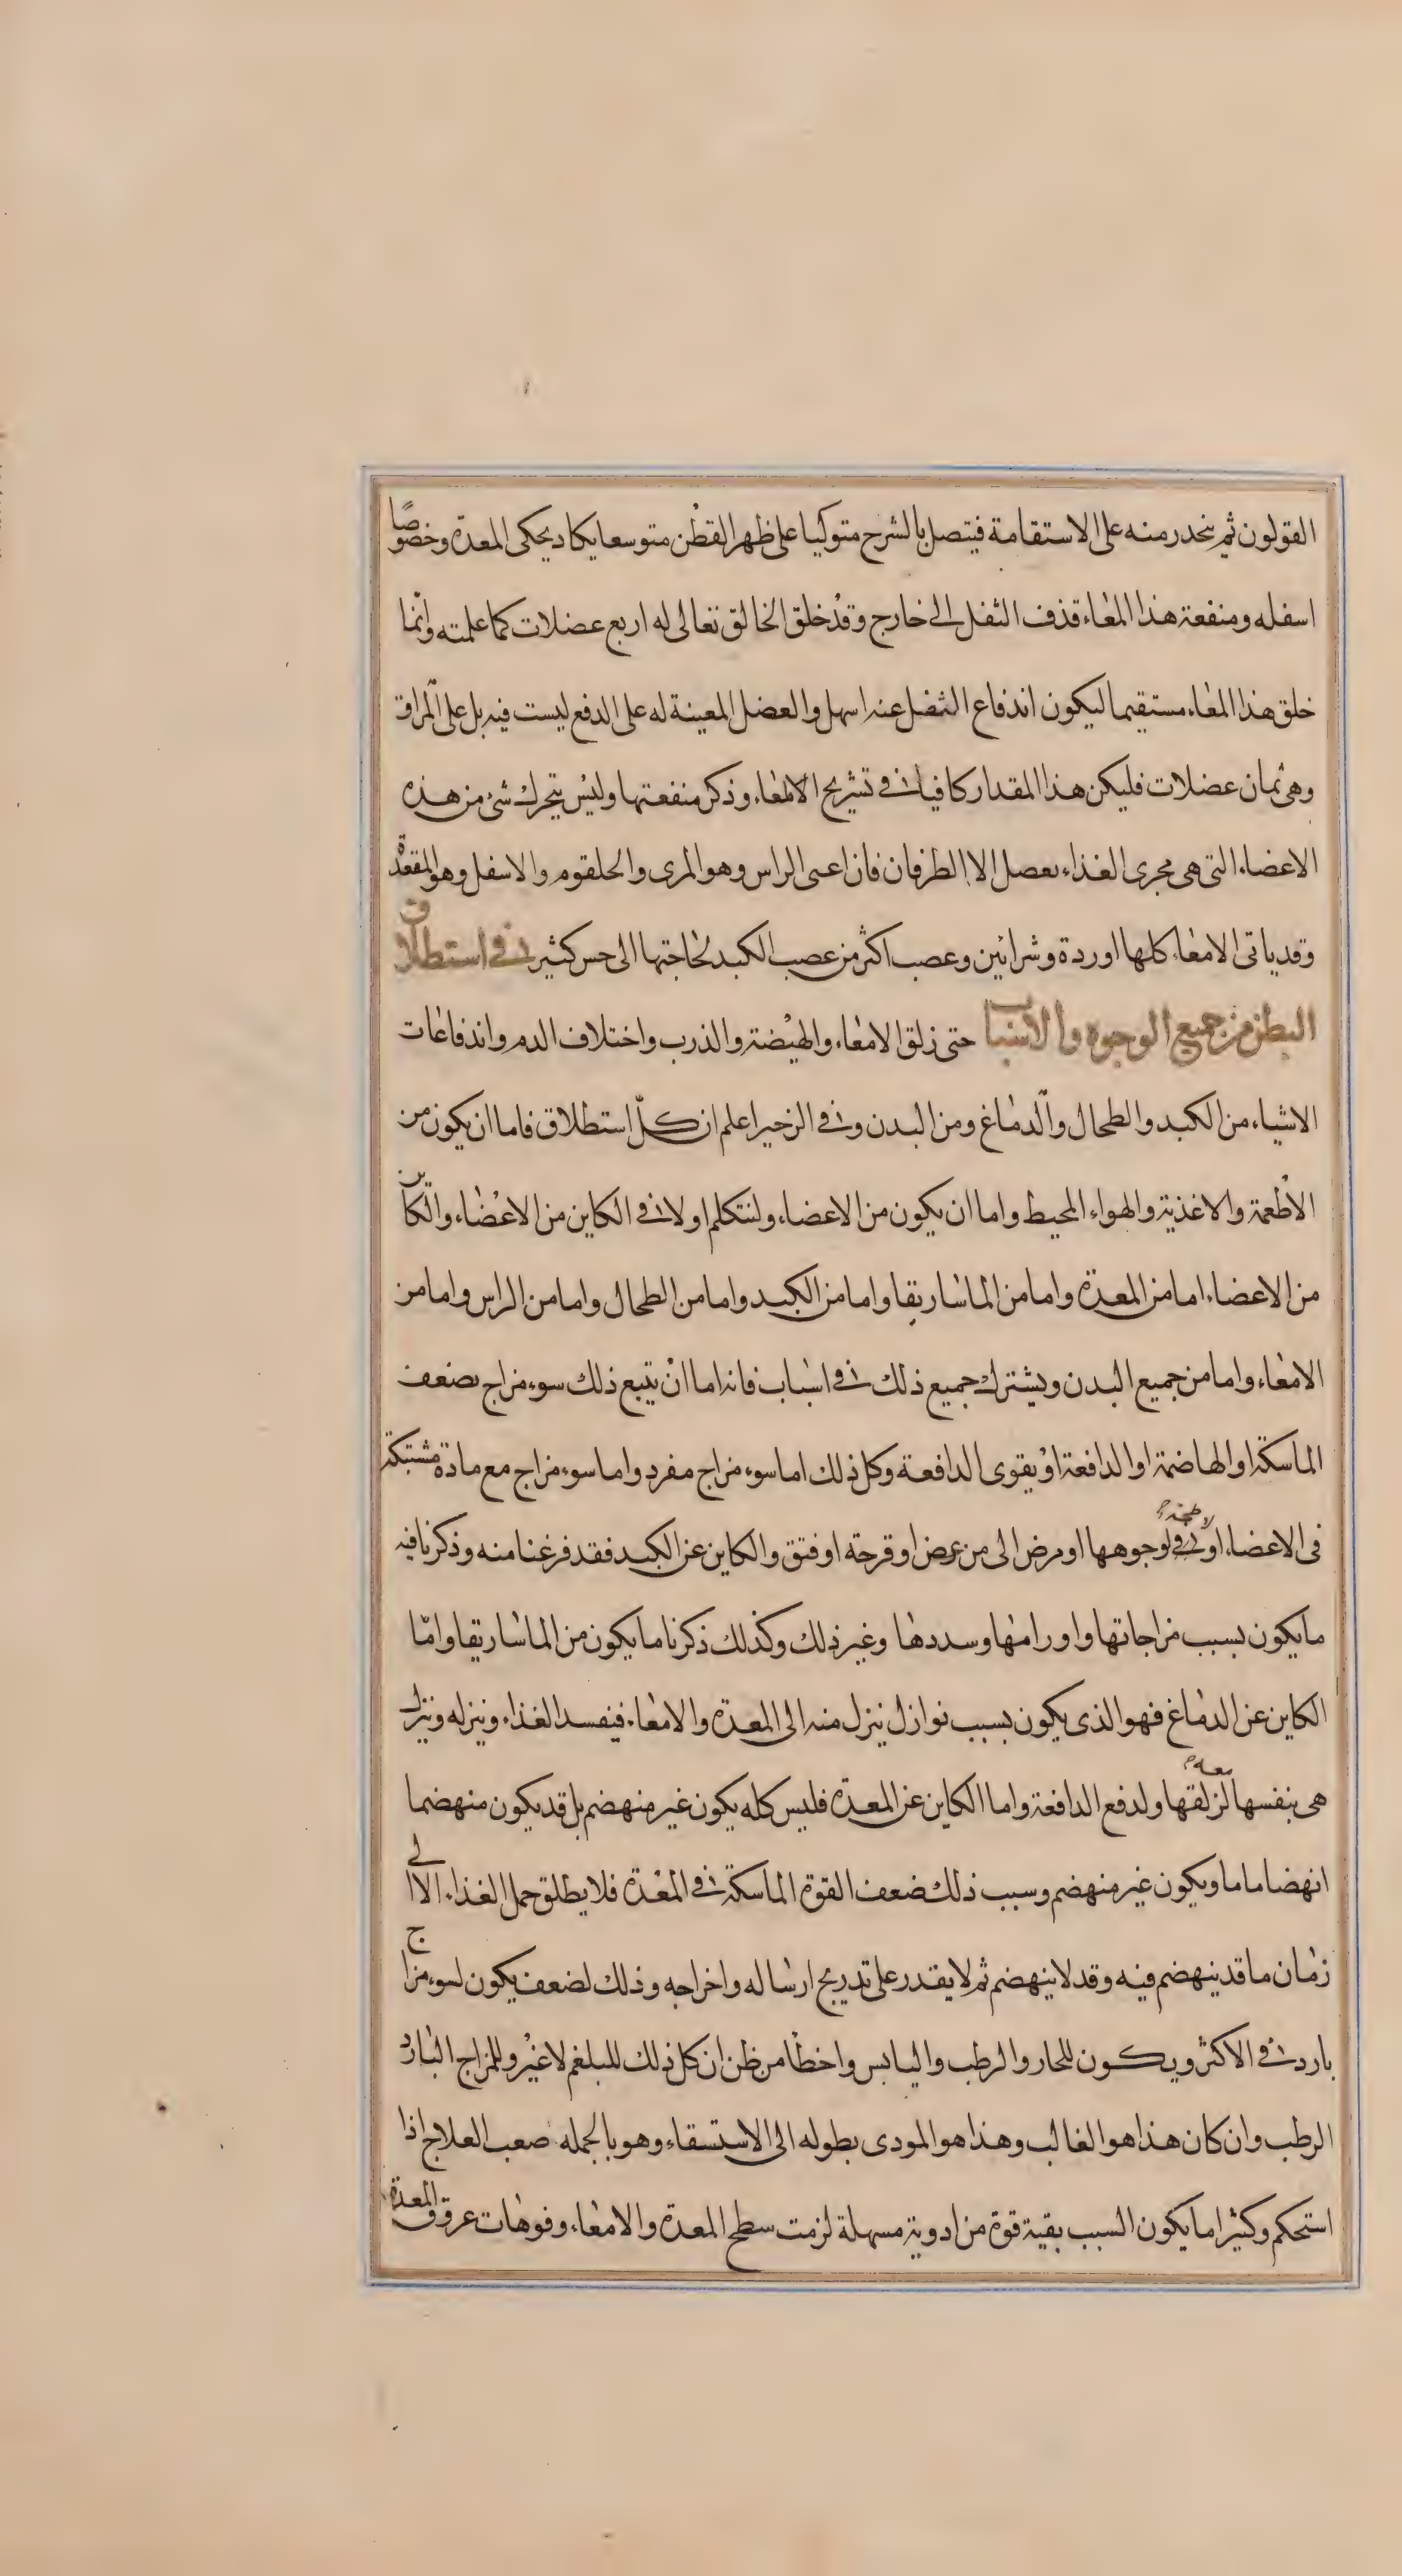 القولون ثم ينحدر منه على الاستقامة فيتصل بالشرح متوكيا على ظهر القطن متوسعا يكاد يحكى المعدة وخصوصًا
اسفله ومنفعة هذا المعاء قذف الثفل الى خارج وقد خلق الخالق تعالى له اربع عضلات كما علمته وانّما
خلق هذا المعاء مستقيما ليكون اندفاع الثفل عنه اسهل والعضل المعينة له على الدفع ليست فيه بل على المراق
وهى ثمان عضلات فليكن هذا المقدار كافيا فى تشريح الامعاء وذكر منفعتها وليس يتحرك شئ من هذه
الاعضاء التى هى مجرى الغذاء بعصل الا الطرفان فان اعى الراس وهو المرى والحلقوم والاسفل وهو المقعدة
وقد ياتى الامعاء كلها اوردة وشرائين وعصب اكثر من عصب الكبد لحاجتها الى حس كثير فى استطلاق
البطن من جميع الوجوه والاسباب حتى زلق الامعاء والهيضة والذرب واختلاف الدم واندفاعات
الاشياء من الكبد والطحال والدماغ ومن البدن وفى الزحير اعلم ان كلّ استطلاق فاما ان يكون من
الاطعمة والاغذية والهواء المحيط واما ان يكون من الاعضاء ولنتكلم اولا فى الكاين من الاعضاء والكاين
من الاعضاء اما من المعدة واما من الماساريقا واما من الكبد واما من الطحال واما من الراس واما من
الامعاء واما من جميع البدن ويشترك جميع ذلك فى اسباب فانه اما ان يتبع ذلك سوء مزاج يضعف
الماسكة او الهاضمة او الدافعة او يقوى الدافعة وكل ذلك اما سوء مزاج مفرد واما سوء مزاج مع مادة مشتبكة
فى الاعضاء او لاطخة لوجوهها او مرض الى من عرض او قرحة او فتق والكاين عن الكبد فقد فرغنا منه وذكرنا فيه
ما يكون بسبب مزاجاتها واورامها وسددها وغير ذلك وكذلك ذكرنا ما يكون من الماساريقا وامّا
الكاين عن الدماغ فهو الذى يكون بسبب نوازل ينزل منه الى المعدة والامعاء فيفسد الغذاء وينزله وينزل
هى بنفسها معه لزلقها ولدفع الدافعة واما الكاين عن المعدة فليس كله يكون غير منهضم بل قد يكون منهضما
انهضاما ما ويكون غير منهضم وسبب ذلك ضعف القوة الماسكة فى المعدة فلا يطلق حمل الغذاء الا الى
زمان ما قد ينهضم فيه وقد لا ينهضم ثم لا يقدر على تدريج ارساله واخراجه وذلك لضعف يكون لسوء مزاج
بارد فى الاكثر ويكون للحار والرطب واليابس واخطا من ظن ان كل ذلك للبلغم لا غير وللمزاج البارد
الرطب وان كان هذا هو الغالب وهذا هو المودى بطوله الى الاستسقاء وهو بالجمله صعب العلاج اذا
استحكم وكثيرا ما يكون السبب بقية قوة من ادوية مسهلة لزمت سطح المعدة والامعاء وفوهات عروق المعدة